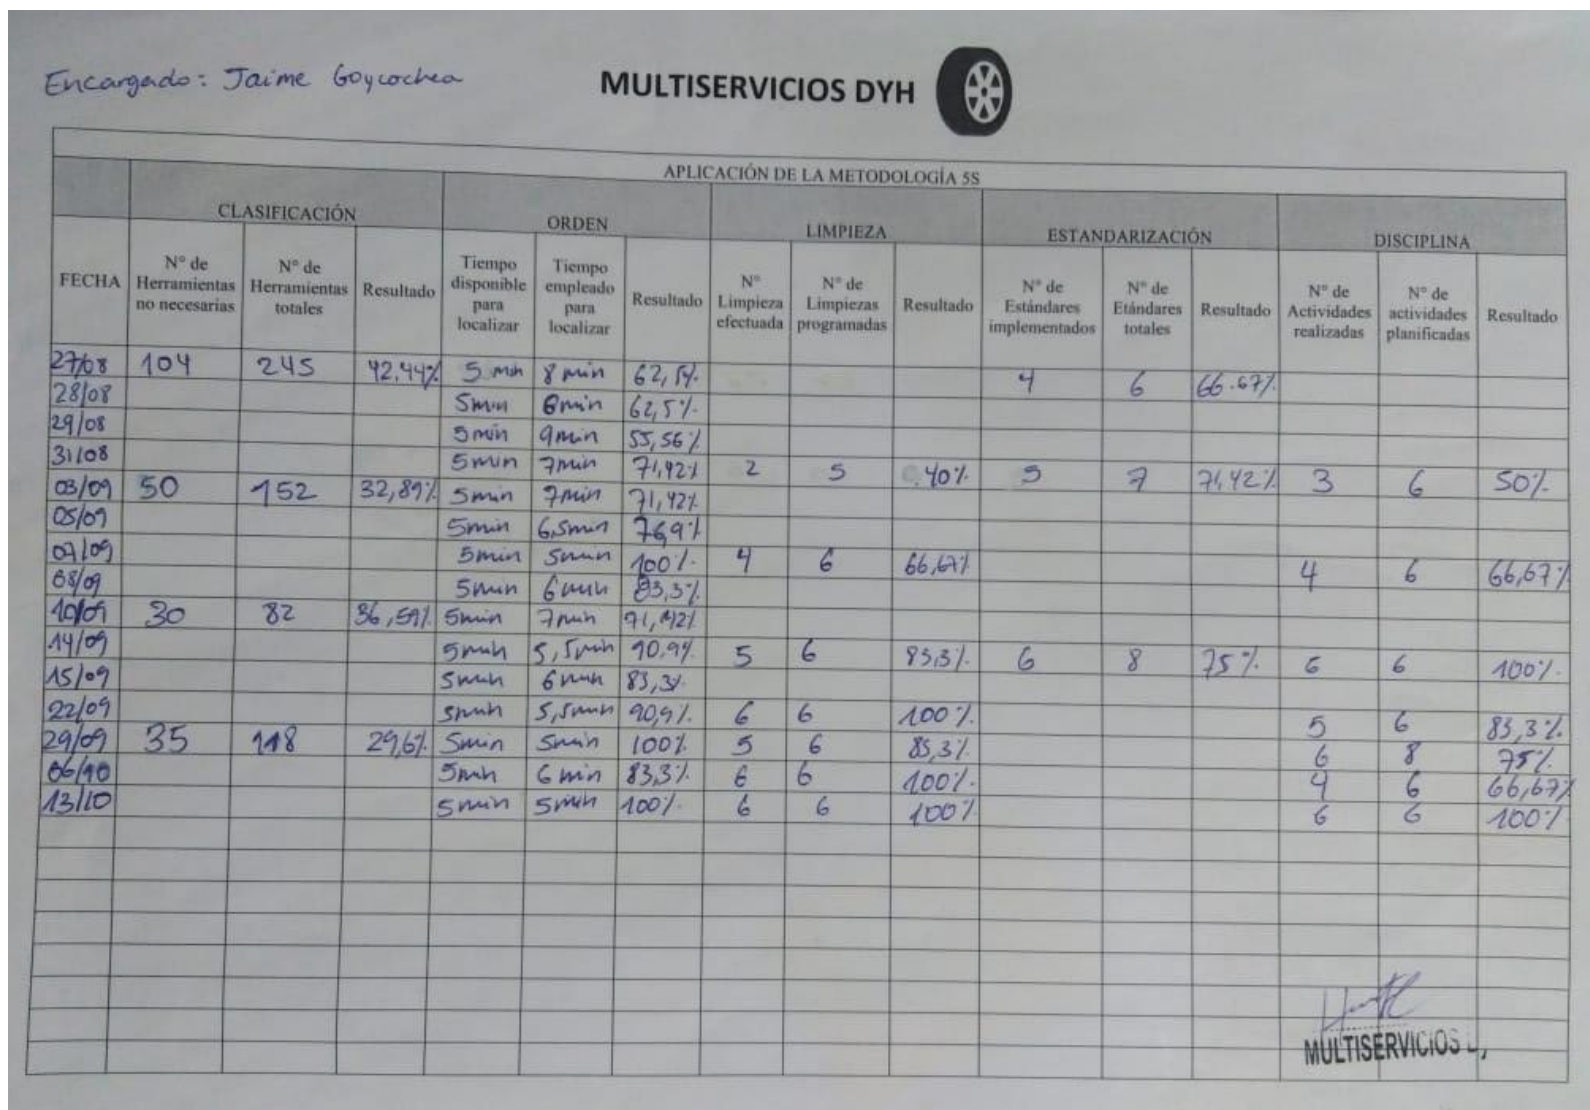 Encargado: Jaime Goycochea
MULTISERVICIOS DYH
APLICACIÓN DE LA METODOLOGÍA 5S
CLASIFICACIÓN ORDEN LIMPIEZA ESTANDARIZACIÓN DISCIPLINA
FECHA N° de Herramientas no necesarias N° de Herramientas totales Resultado Tiempo disponible para localizar Tiempo empleado para localizar Resultado N° Limpieza efectuada N° de Limpiezas programadas Resultado N° de Estándares implementados N° de Etándares totales Resultado N° de Actividades realizadas N° de actividades planificadas Resultado
27/08 104 245 42,44% 5 min 8 min 62,5% 4 6 66.67%
28/08 5min 8min 62,5%
29/08 5min 9min 55,56%
31/08 5min 7min 71,42% 2 5 40% 5 7 71,42% 3 6 50%
03/09 50 152 32,89% 5min 7min 71,42%
05/09 5min 6,5min 76,9%
07/09 5min 5min 100% 4 6 66,67% 4 6 66,67%
08/09 5min 6min 83,3%
10/09 30 82 36,59% 5min 7min 71,42%
14/09 5min 5,5min 90,9% 5 6 83,3% 6 8 75% 6 6 100%
15/09 5min 6min 83,3%
22/09 5min 5,5min 90,9% 6 6 100% 5 6 83,3%
29/09 35 118 29,6% 5min 5min 100% 5 6 83,3% 6 8 75%
06/10 5min 6min 83,3% 6 6 100% 4 6 66,67%
13/10 5min 5min 100% 6 6 100% 6 6 100%
MULTISERVICIOS